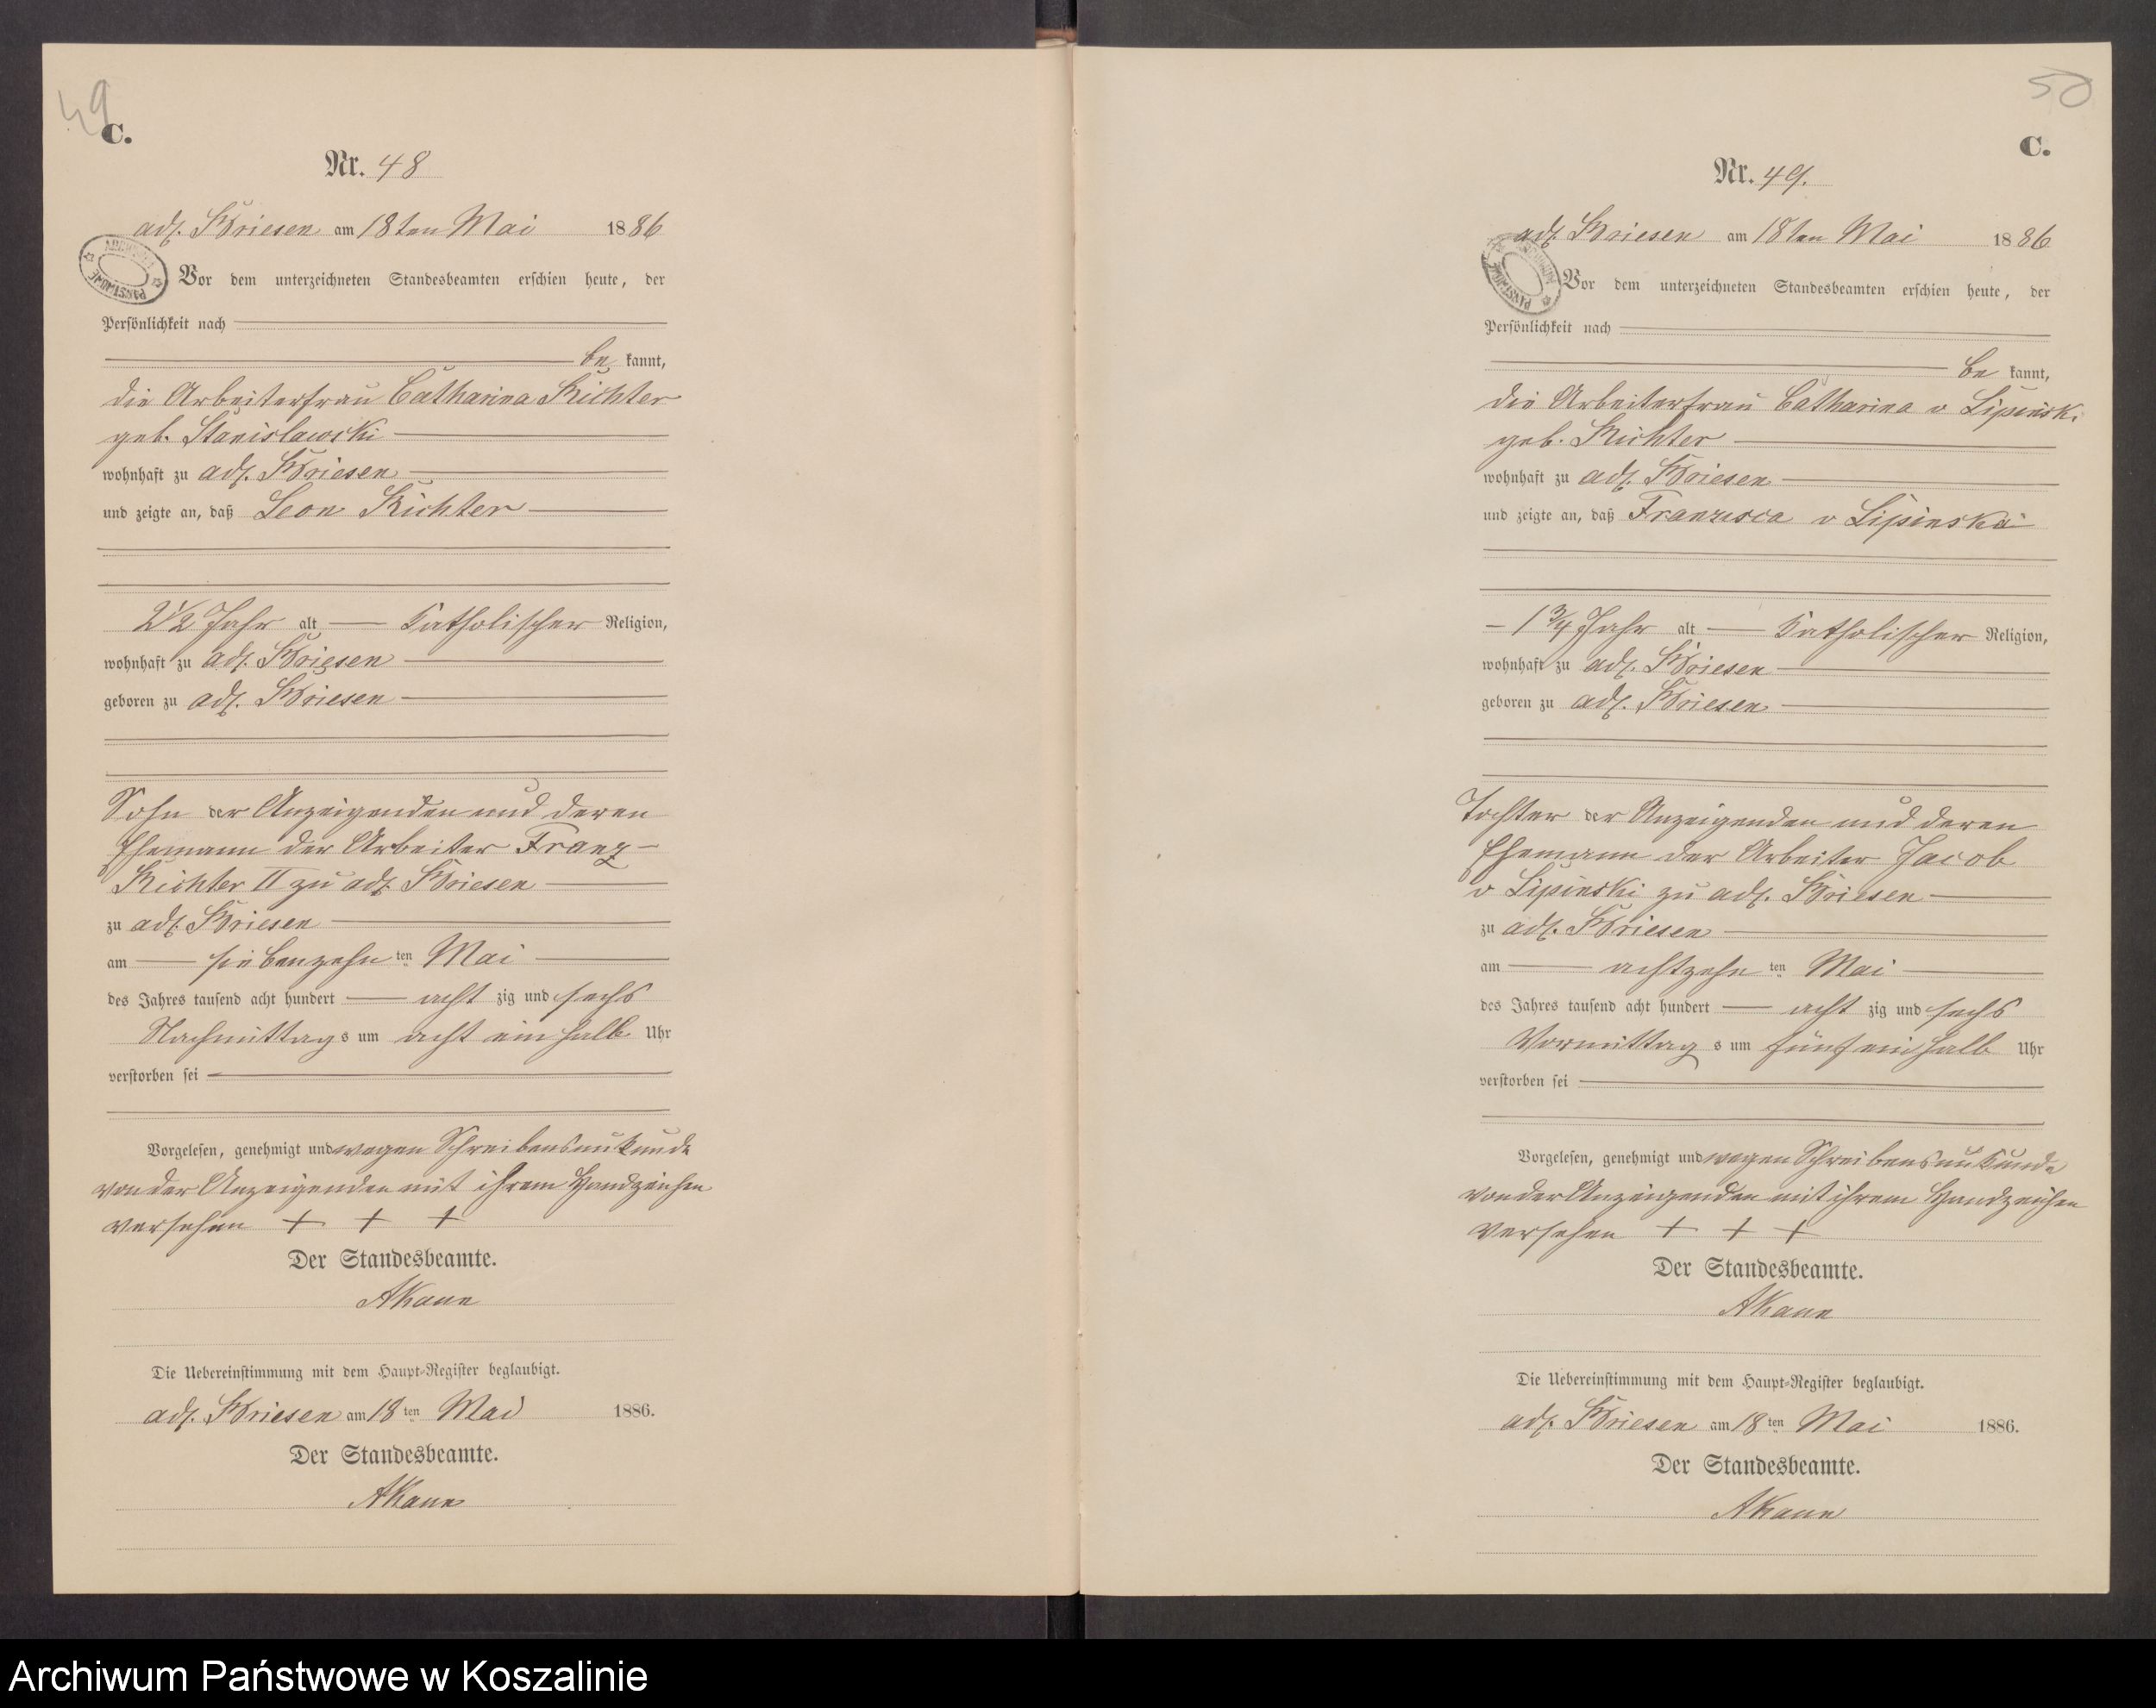 49
C.
Nr. 48
adl. Briesen am 18ten Mai 1886
Vor dem unterzeichneten Standesbeamten erschien heute, der
Persönlichkeit nach
be kannt,
die Arbeiterfrau Catharina Richter
geb. Stanislawski
wohnhaft zu adl. Briesen
und zeigte an, daß Leon Richter
2 1/2 Jahr alt Katholischer Religion,
wohnhaft zu adl. Briesen
geboren zu adl. Briesen
Sohn der Anzeigenden und deren
Ehemann der Arbeiter Franz
Richter II zu adl. Briesen
zu adl. Briesen
am siebenzehn ten Mai
des Jahres tausend acht hundert acht zig und sechs
Nachmittag s um acht ein halb Uhr
verstorben sei
Vorgelesen, genehmigt und wegen Schreibensunkunde
von der Anzeigenden mit ihrem Handzeichen
versehen + + +
Der Standesbeamte.
AKaun
Die Uebereinstimmung mit dem Haupt-Register beglaubigt.
adl. Briesen am 18 ten Mai 1886.
Der Standesbeamte.
AKaun
50
C.
Nr. 49.
adl. Briesen am 18ten Mai 1886
Vor dem unterzeichneten Standesbeamten erschien heute, der
Persönlichkeit nach
be kannt,
die Arbeiterfrau Catharina v Lipinski
geb. Richter
wohnhaft zu adl. Briesen
und zeigte an, daß Franzisca v Lipinska
1 3/4 Jahr alt Katholischer Religion,
wohnhaft zu adl. Briesen
geboren zu adl. Briesen
Tochter der Anzeigenden und deren
Ehemann der Arbeiter Jacob
v Lipinski zu adl. Briesen
zu adl. Briesen
am achtzehn ten Mai
des Jahres tausend acht hundert acht zig und sechs
Vormittag s um fünf ein halb Uhr
verstorben sei
Vorgelesen, genehmigt und wegen Schreibensunkunde
von der Anzeigenden mit ihrem Handzeichen
versehen + + +
Der Standesbeamte.
AKaun
Die Uebereinstimmung mit dem Haupt-Register beglaubigt.
adl. Briesen am 18 ten Mai 1886.
Der Standesbeamte.
AKaun
Archiwum Państwowe w Koszalinie